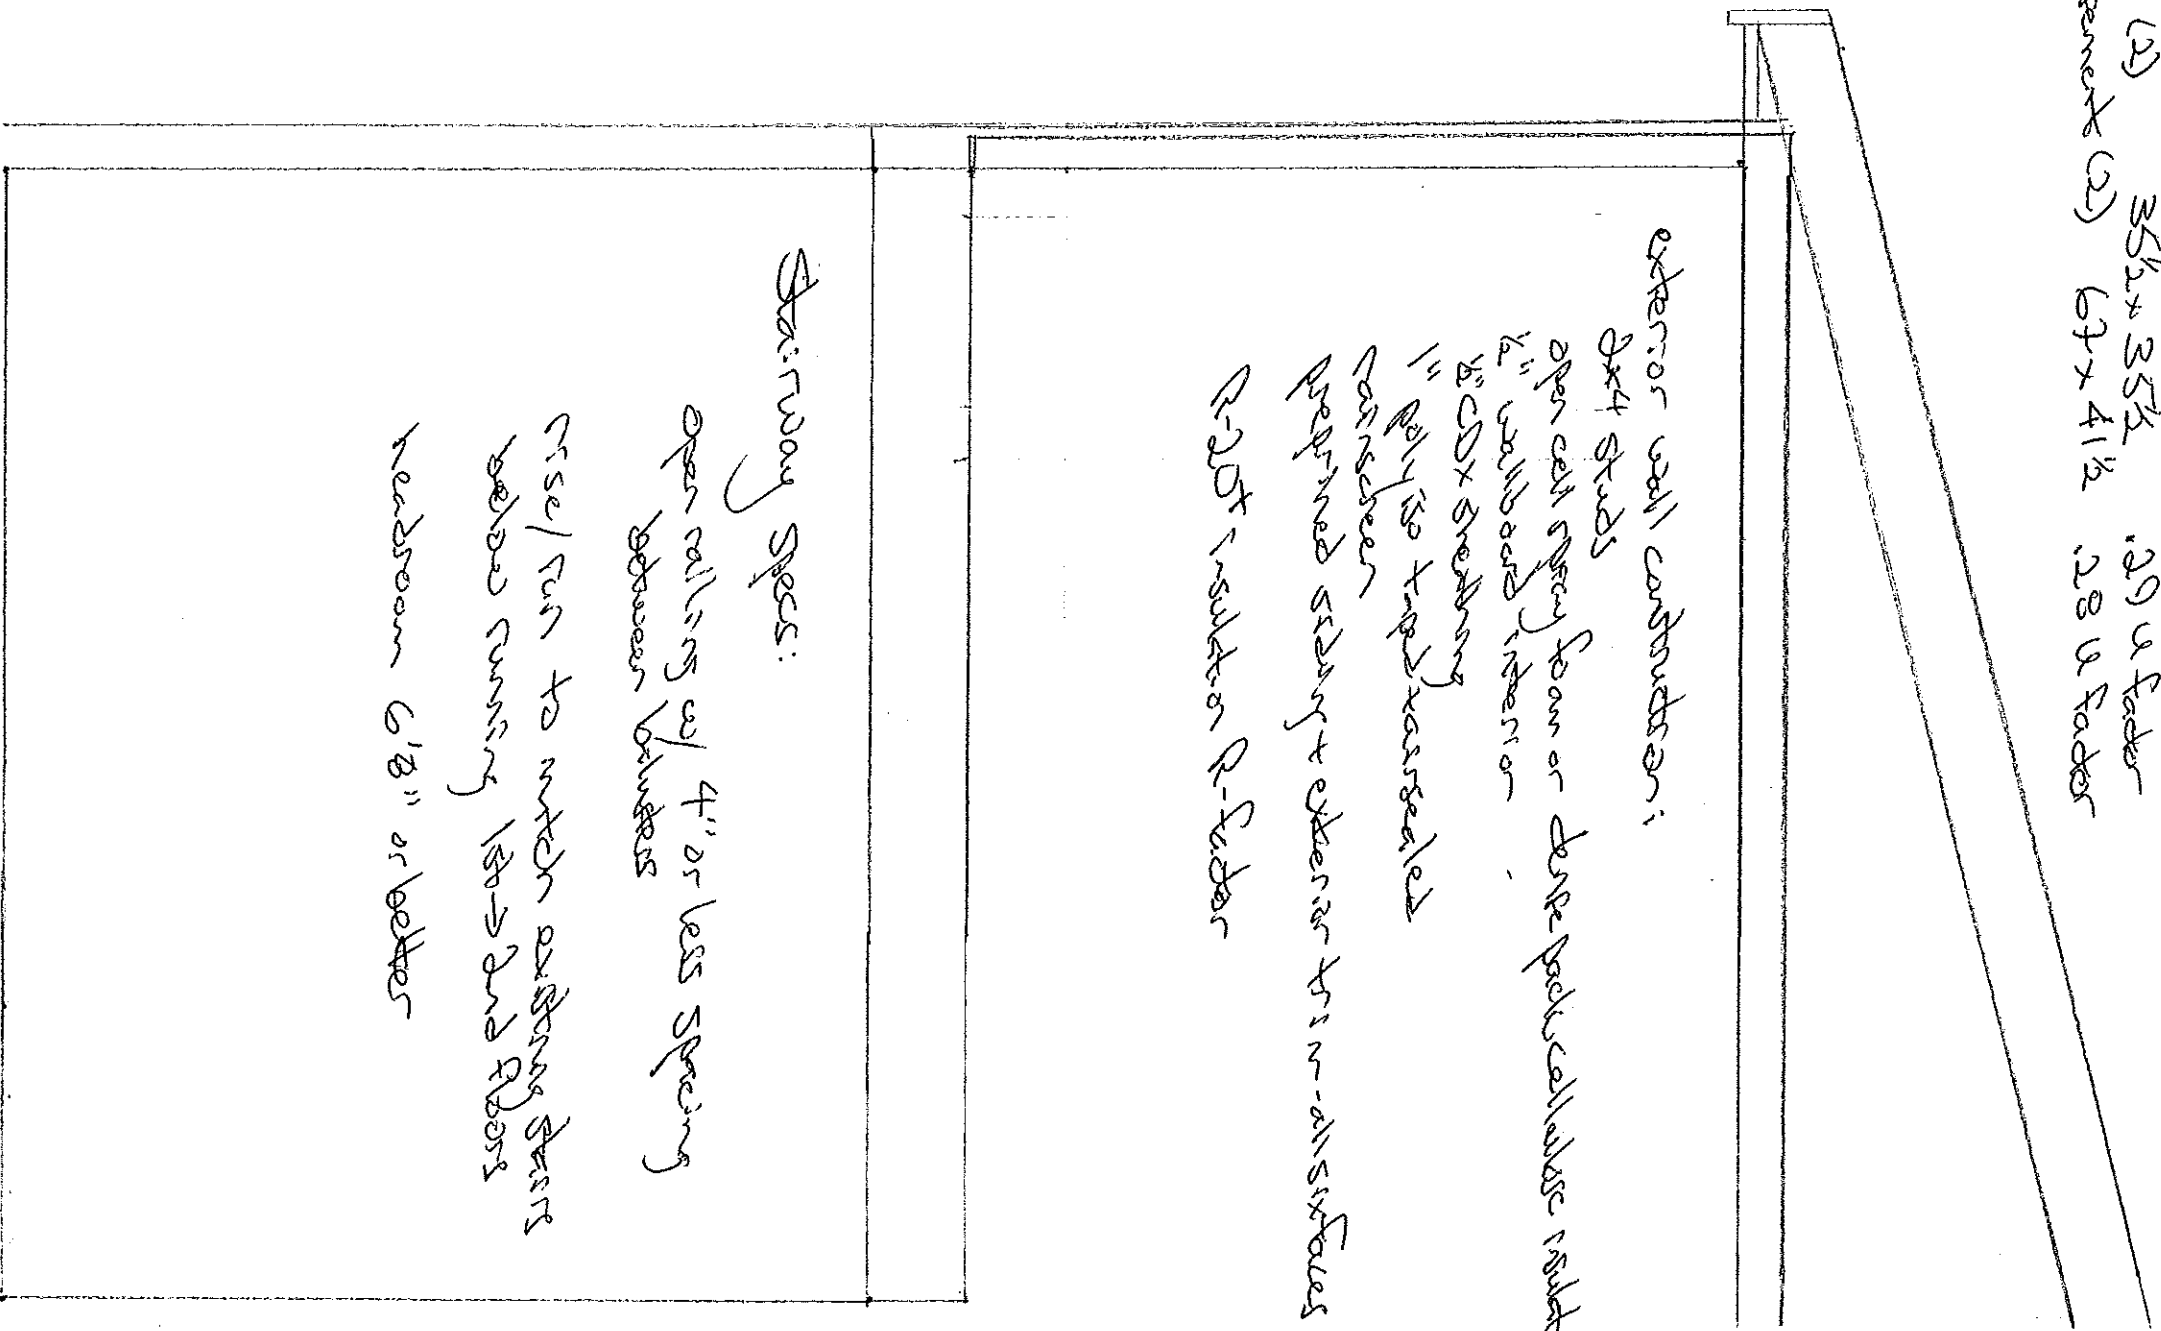 (2) 35½ x 35½ .29 U factor
(2) 67 x 41½ .28 U factor
exterior wall construction:
2x4 studs
open cell spray foam or dense pack cellulose insulat
½" wallboard interior
½" CDX sheathing
1" polyiso taped + air sealed
rainscreen
preprimed siding + exterior trim - all six faces
R-20+ insulation R-factor
Stairway Specs:
open railing w/ 4" or less spacing
between balusters
rise/run to match existing stairs
below running 1st → 2nd floors
headroom 6'8" or better